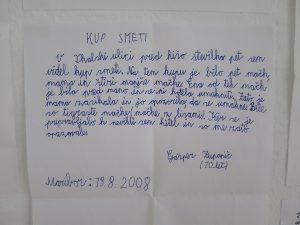 KUP SMETI
V Othalski ulici pred hišo številka pet sem
videl kup smeti. Na tem kupu je bilo pet mačk,
mama in štiri manjše mačke. Ena od teh mačk
je bila pred mano in se ni hotela umakniti. Zato je
mama zapihala in jo opozorila, da se umakne. Bile
so tigraste mačke, mačke z lisami. Ker se je
pripravljalo k nevihti sem hitel in so me zato
opazovale.
Gašper Zupanič
(10 let)
Maribor: 19.8.2008